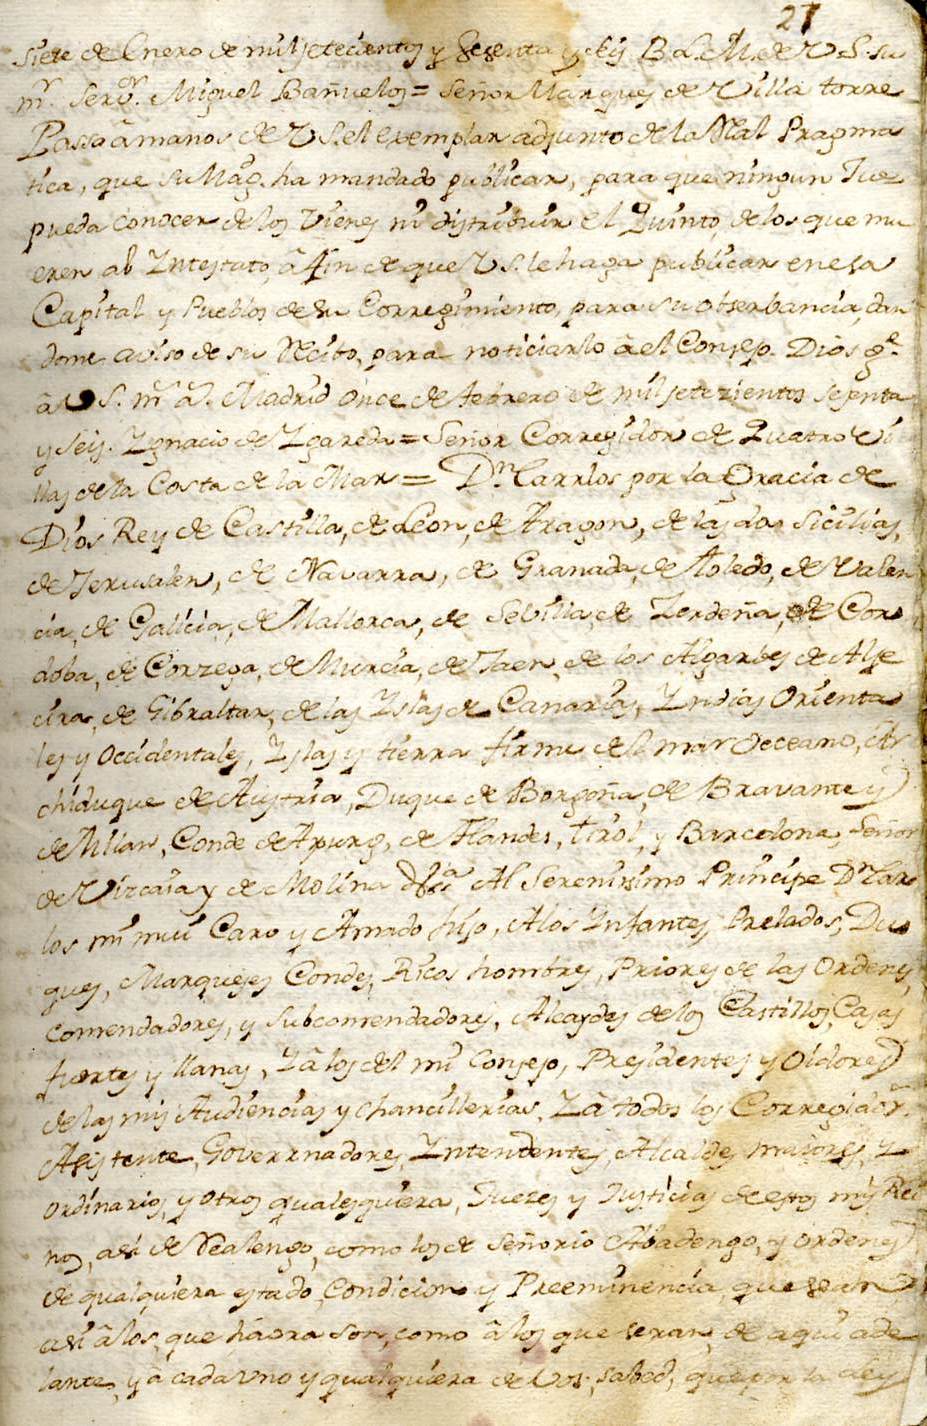 27
siete de Enero de mil setecientos y sesenta y seis B. L. M. de V. S. su
mr. Sergr. Miguel Bañuelos = Señor Marques de Villa torre
Passo â manos de V S. el exemplar adjunto de la Real Pragma
tica, que su Mag. ha mandado publicar, para que ningun Juez
pueda conocer de los Vienes ni distribuir el Quinto, de los que mu
eren ab Yntestato, â fin de que V S. le haga publicar en esa
Capital y Pueblos de su Corregimiento, para su obserbancia, dan
dome aviso de su Recibo, para noticiarlo â el Consejo. Dios ge.
â V S. ms. as. Madrid Once de febrero de mil setezientos sesenta
y seis. Ygnacio de Ygareda = Señor Corregidor de Quatro Vi
llas de la Costa de la Mar = Dn. Carrlos por la Gracia de
Dios Rey de Castilla, de Leon, de Aragon, de las dos Sicilias,
de Jerusalen, de Navarra, de Granada, de Toledo, de Valen
cia, de Galicia, de Mallorca, de Sebilla, de Zerdeña, de Cor
doba, de Corzega, de Murcia, de Jaen, de los Algarbes de Alje
cira, de Gibraltar, de las Yslas de Canarias, Yndias Orienta
les y Occidentales, Yslas y tierra firme del mar Occeano, Ar
chiduque de Austria, Duque de Borgoña, de Bravante y
de Milan, Conde de Apurg, de Flandes, tirol, y Barcelona, Señor
de Vizcaia y de Molina &ca. Al Serenisimo Principe Dn. Car
los mi mui Caro y Amado hijo, A los Ynfantes, Prelados, Du
ques, Marqueses Condes, Ricos hombres, Priores de las Ordenes,
comendadores, y Subcomendadores, Alcaydes de los Castillos, Casas
fuertes y llanas, Y â los del mi Consejo, Presidentes y Oidores
de las mis Audiencias y Chancillerias, Y â todos los Corregidor.
Asistente, Goverrnadores, Yntendentes, Alcaldes maiores, y
Ordinarios, y otros qualesquiera, Juezes y Justicias de estos mis Rei
nos, asi de Realengo, como los de Señorio Abadengo, y Ordenes
de qualquiera estado, Condicion y Preeminencia, que sean
asi â los, que haora son, como â los que seran, de aqui ade
lante, y â cada Uno y qualquiera de Vos; sabed, que por la Ley